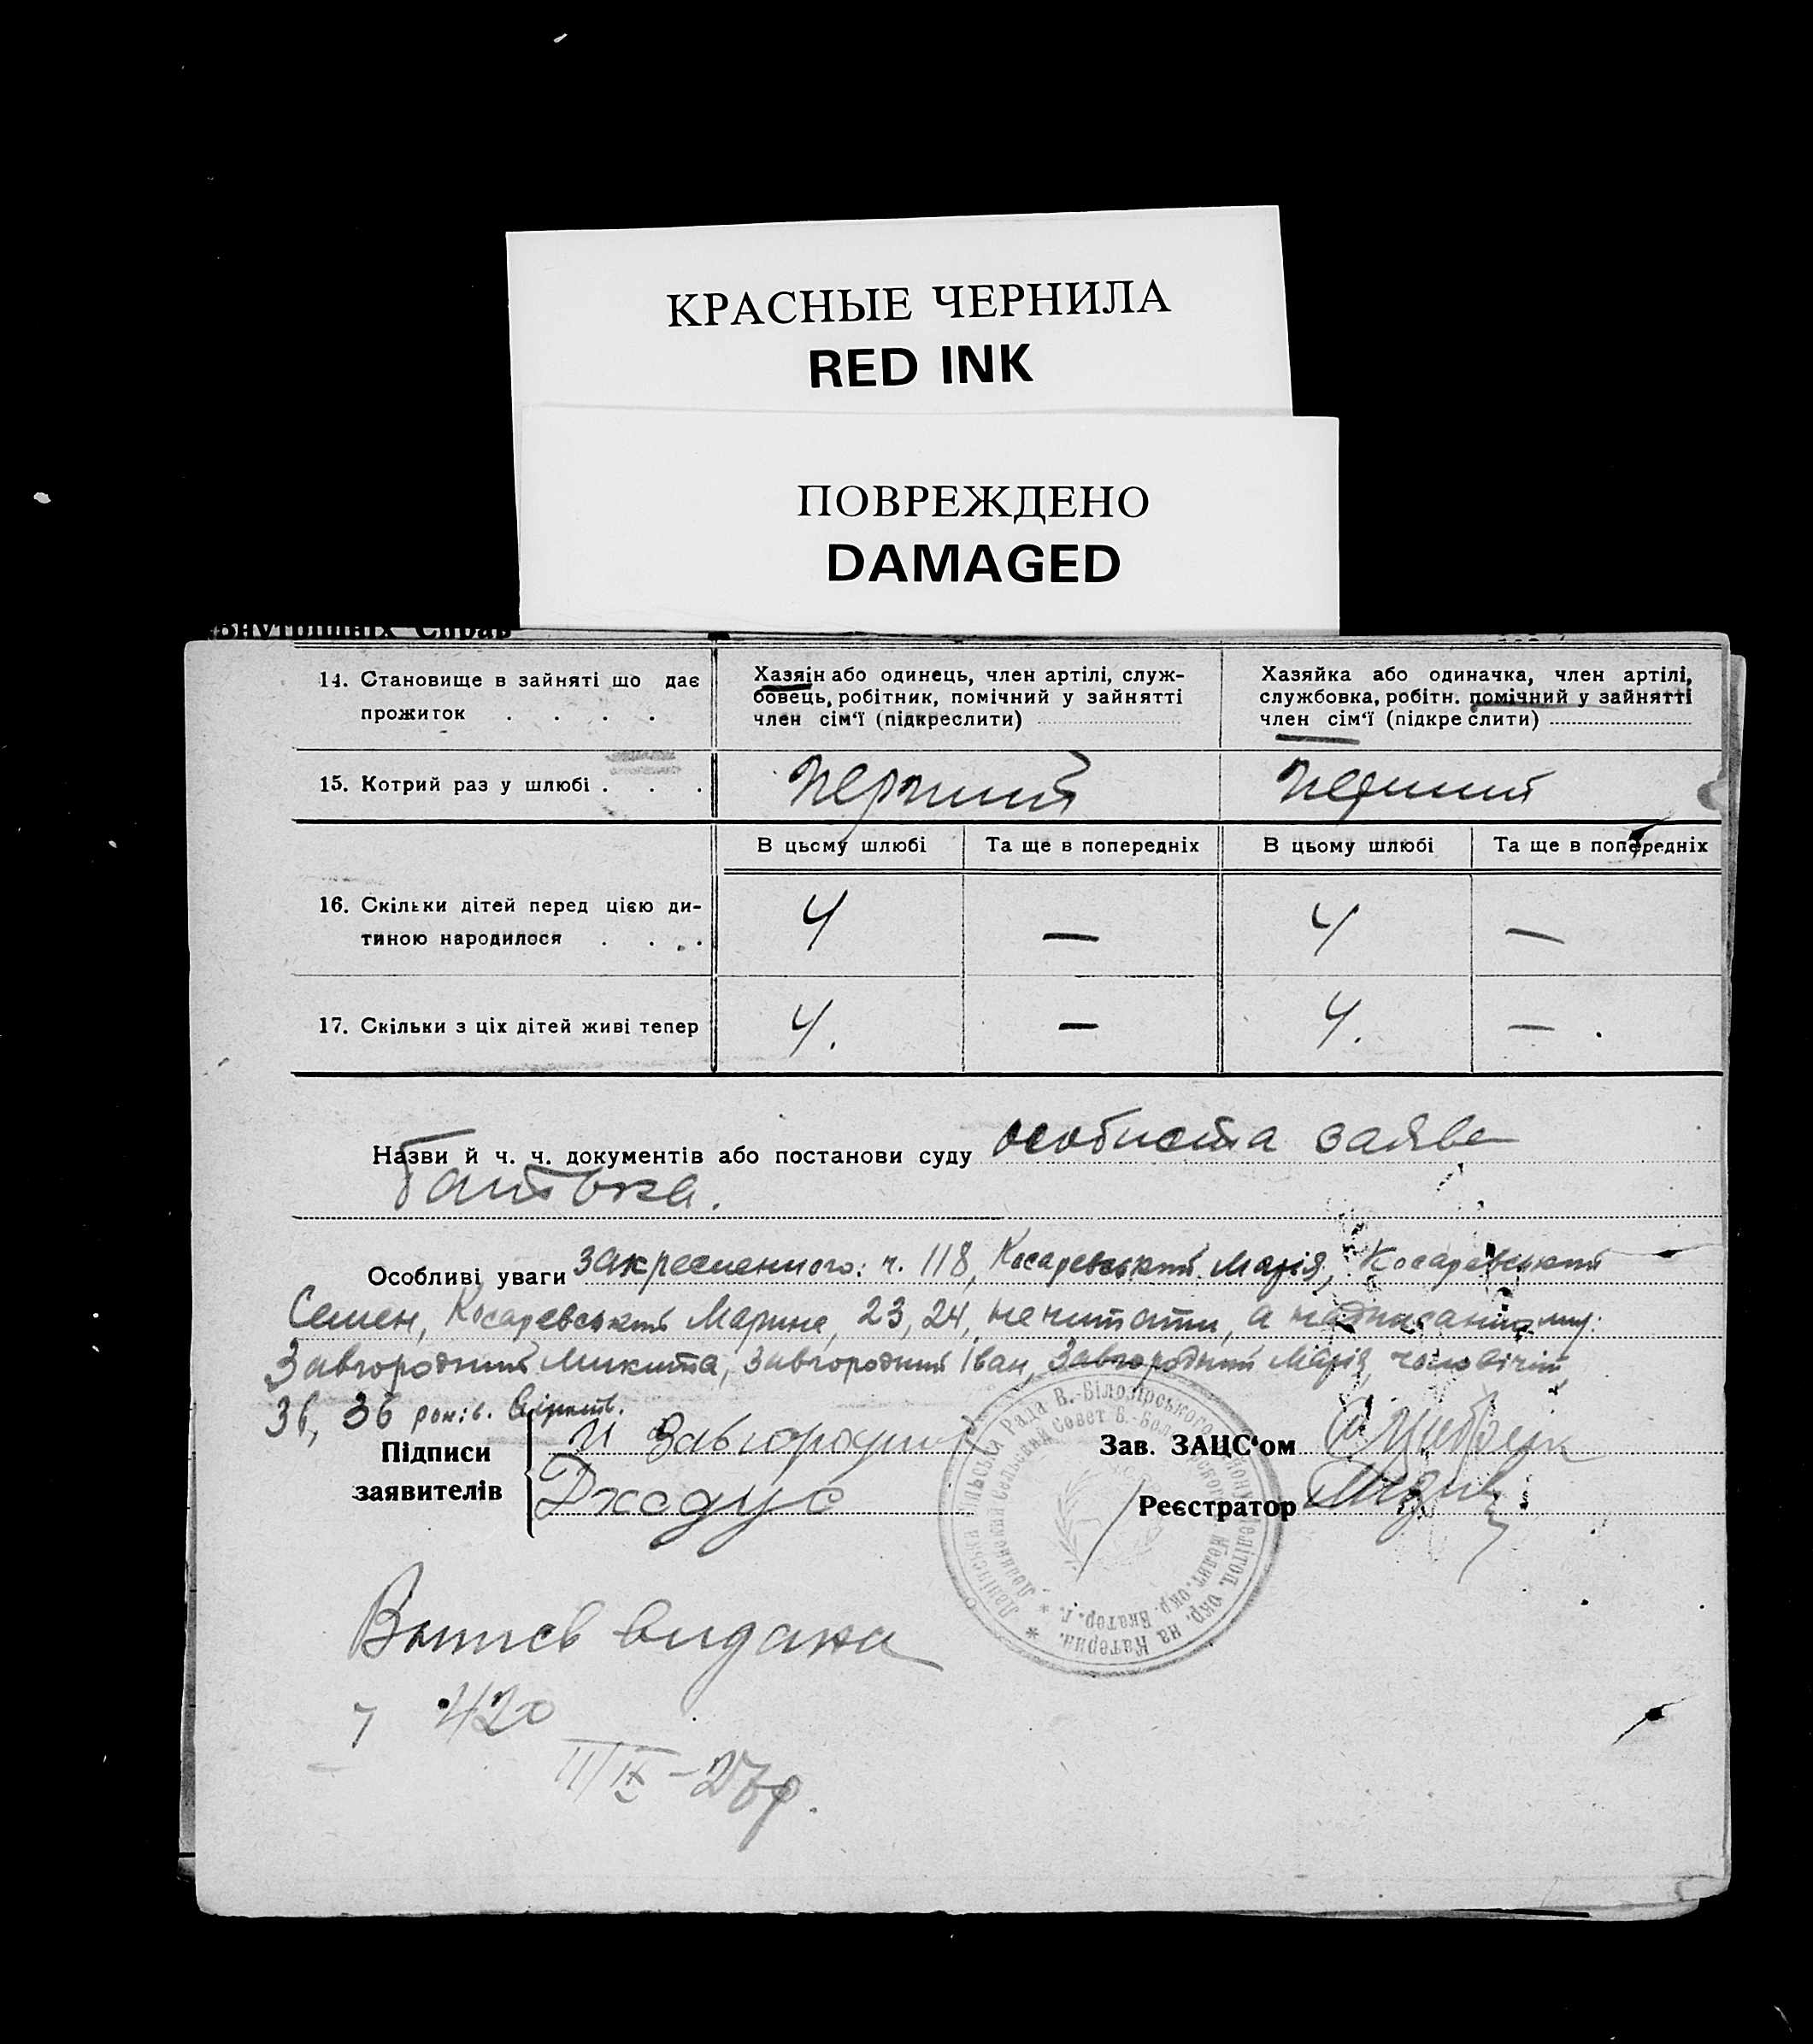 КРАСНЫЕ ЧЕРНИЛА
RED INK
ПОВРЕЖДЕНО
DAMAGED
Внутрішніх Справ
14. Становище в зайняті що дає
прожиток . . . .
Хазяін або одинець, член артілі, служ-
бовець, робітник, помічний у зайнятті
член сім‘ї (підкреслити)
Хазяйка або одиначка, член артілі,
службовка, робітн. помічний у зайнятті
член сім‘ї (підкреслити)
15. Котрий раз у шлюбі . . .
перший
перший
В цьому шлюбі
Та ще в попередніх
В цьому шлюбі
Та ще в попередніх
16. Скільки дітей перед цією ди-
тиною народилося . . . .
4 — 4 —
17. Скільки з ціх дітей живі тепер
4. — 4. — .
Назви й ч. ч. документів або постанови суду особиста заява
батька.
Особливі уваги закресленного: ч. 118, Косаревський Марія, Косаревський
Семен, Косаревський Марина, 23, 24, не читати, а надписаному:
Завгородний Микита, Завгородний Іван, Завгородний Марія, чоловічий,
36, 36 років. Вірить.
Підписи
заявителів
И Завгородний
Джодус
Зав. ЗАЦС‘ом
Реєстратор
Ленінська Сільська Рада В.-Білозірського району Мелітоп. окр. на Катерин.
Ленинский Сельский Совет В.-Белозерского Мелит. окр. Екатер. г.
Випись видана
7 420
11/IX – 27р.